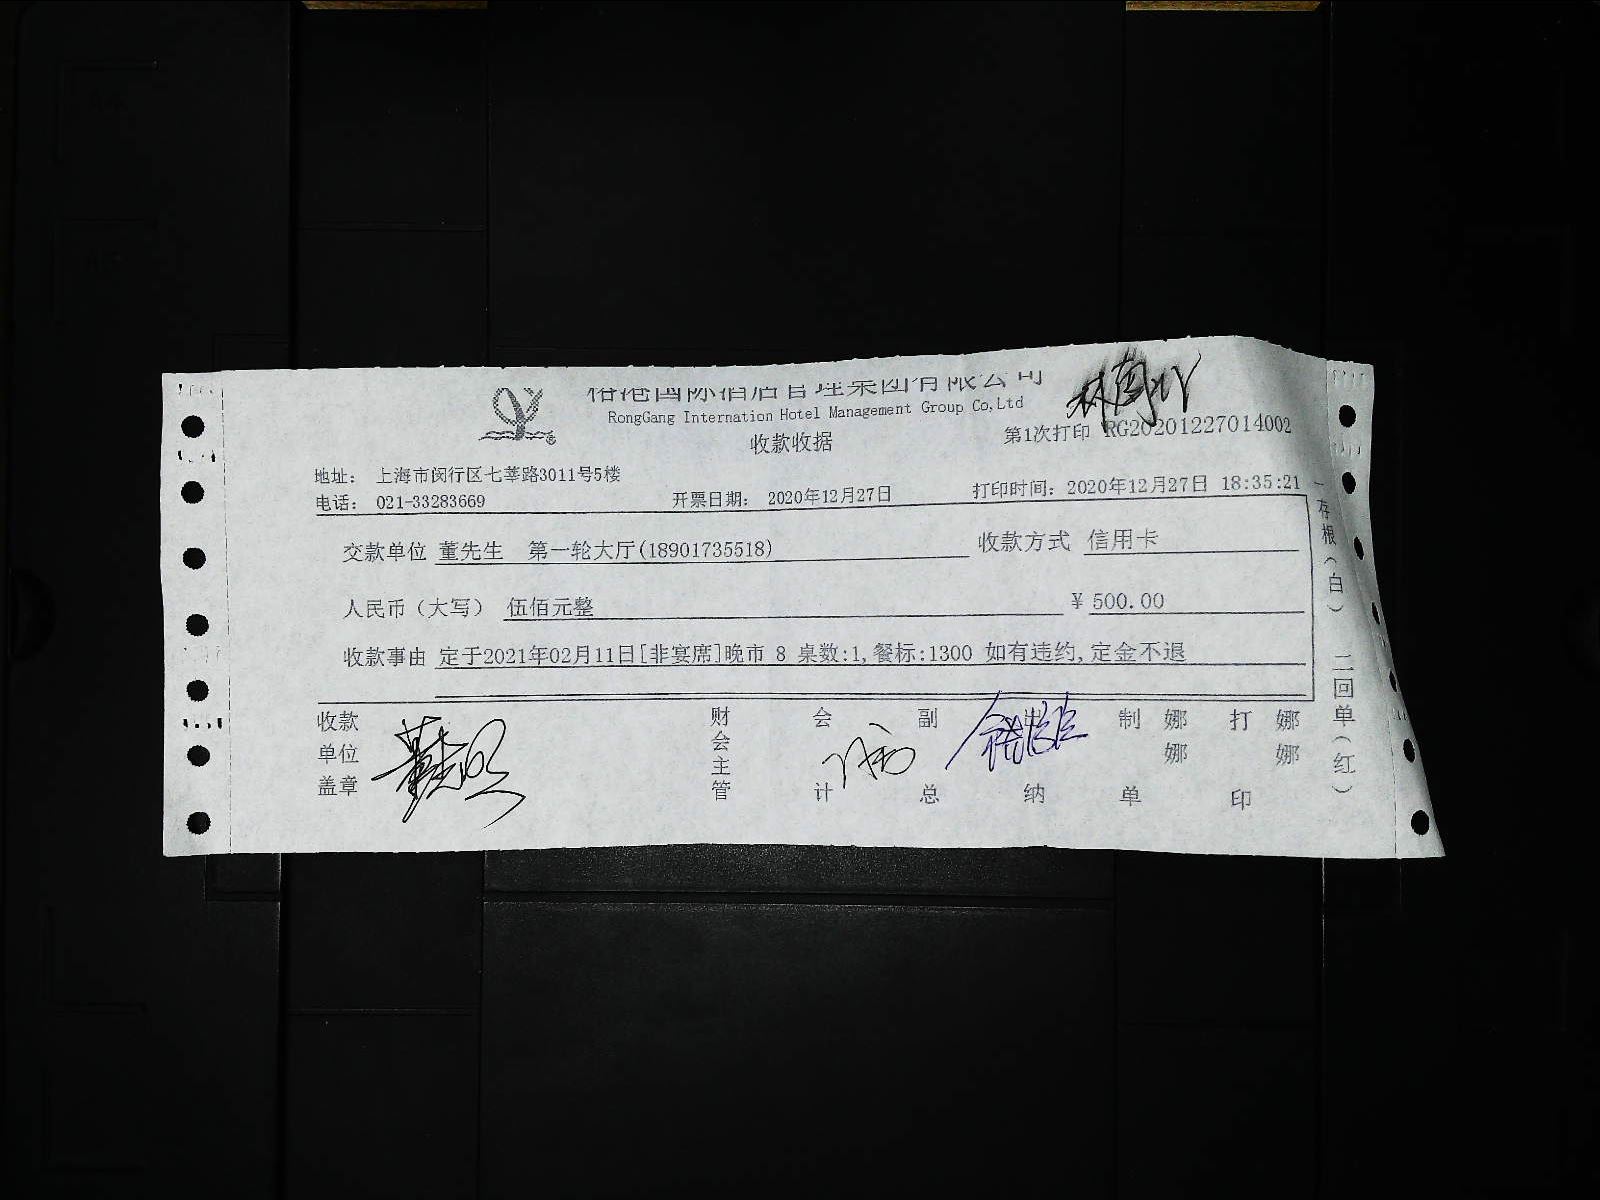 国际酒店管理集团有限公司
RongGang Internation Hotel Management Group Co,Ltd
收款收据
第1次打印 RG20201227014002
地址： 上海市闵行区七莘路3011号5楼
电话： 021-33283669 开票日期： 2020年12月27日 打印时间：2020年12月27日 18:35:21
交款单位 董先生 第一轮大厅(18901735518) 收款方式 信用卡
人民币（大写） 伍佰元整 ¥ 500.00
收款事由 定于2021年02月11日[非宴席]晚市 8 桌数:1,餐标:1300 如有违约,定金不退
收款单位盖章
财会主管
会计
副总
出纳
制单
娜娜
打印
娜娜
一存根（白） 二回单（红）